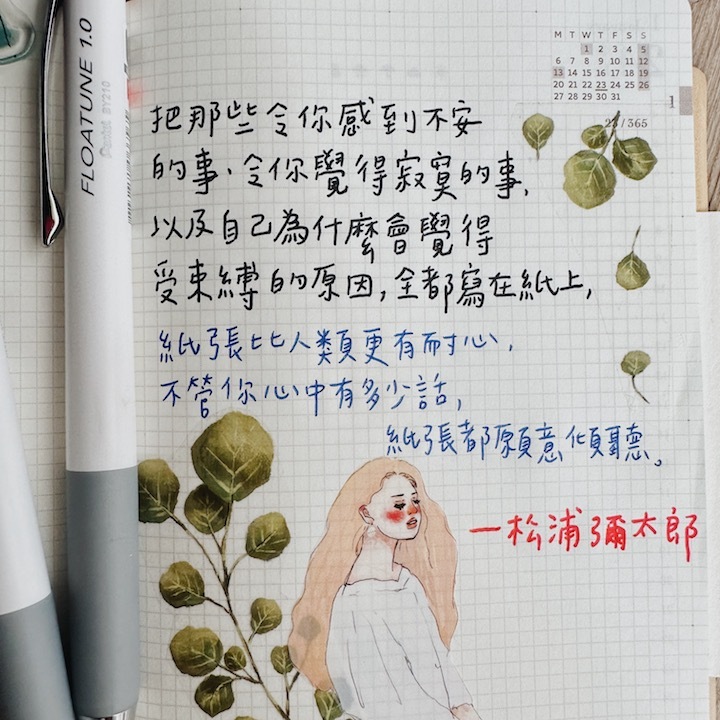 FLOATUNE 1.0
Pentel BY210
M T W T F S S
1 2 3 4 5
6 7 8 9 10 11 12
13 14 15 16 17 18 19
20 21 22 23 24 25 26
27 28 29 30 31
1
23/365
把那些令你感到不安
的事、令你覺得寂寞的事,
以及自己為什麼會覺得
受束縛的原因,全都寫在紙上,
紙張比人類更有耐心,
不管你心中有多少話,
紙張都願意傾聽。
—松浦彌太郎